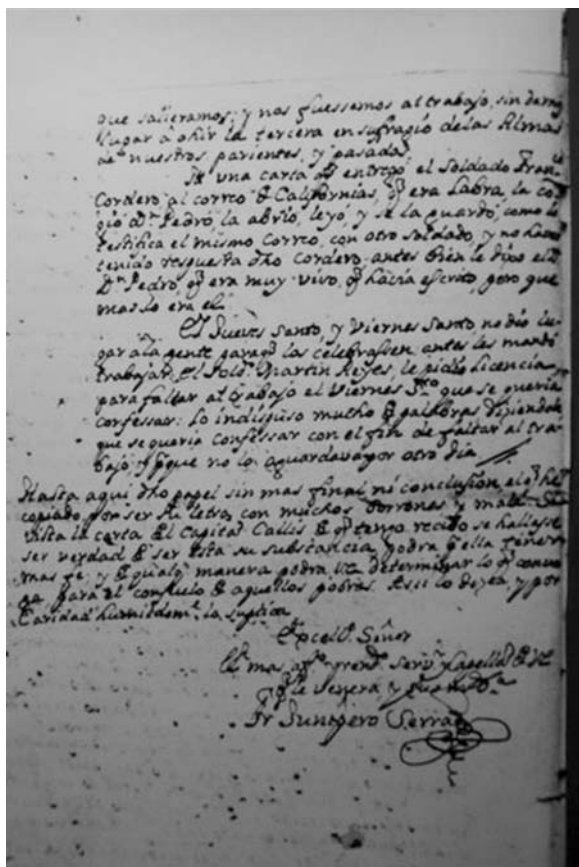 que salieramos; y nos fuessemos al trabajo, sin darnos
lugar à ohir la tercera en sufragio de las Almas
de nuestros parientes, y pasados.
It. una carta q̃ entregò el Soldado Fran.co
Cordero al correo de Californias, q̃ era Labra, la co
gio d.n Pedro, la abrio, leyò, y se la guardò, como lo
testifica el mismo Correo, con otro soldado, y no ha
tenido respuesta dho Cordero, antes bien le dixo el
D.n Pedro, q̃ era muy vivo, q̃ havia escrito, pero que
mas lo era el.
El Jueves Santo, y Viernes Santo, no dio lu
gar a la gente paraq̃ los celebrassen, antes les mandò
trabajar. El Sold.o Martin Reyes, le pidio licencia
para faltar al trabajo el Viernes S.to que se queria
confessar: Lo indispuso mucho de palabras diziendole
que se queria confessar con el fin de faltar al tra
bajo, y q̃ que no lo aguardava por otro dia
Hasta aqui dho papel sin mas final ni conclusion, el q̃ he
copiado por ser de letra, con muchos borrones, y mala. Si
vista la carta del Capitan Callis de q̃ tengo recibo se hallasse
ser verdad de ser esta su substancia, podra q̃ ella tener
mas fe; y de qualq.r manera podra determinar lo q̃ conven
ga para el consuelo de aquellos pobres. Assi lo dezea y por
Caridad humildem.te la suplica
Excell.o Señor
mas af.to y rend.o serv.r y Capellan de
q̃ le venera, y
Fr Junipero Serra